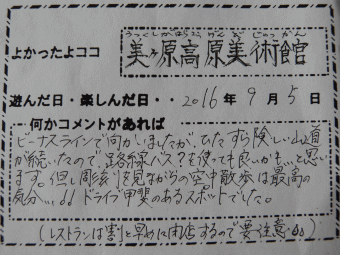 うつくしがはらこうげんびじゅつかん
よかったよココ 美ヶ原高原美術館
遊んだ日・楽しんだ日・・2016年9月5日
何かコメントがあれば
ビーナスラインで向かいましたが、ひたすら険しい山道
が続いたので、路線バス?を使っても良いかも…と思い
ます。但し彫刻を見ながらの空中散歩は最高の
気分…♪♪ドライブ甲斐のあるスポットでした。
(レストランは割と早めに閉店するので要注意